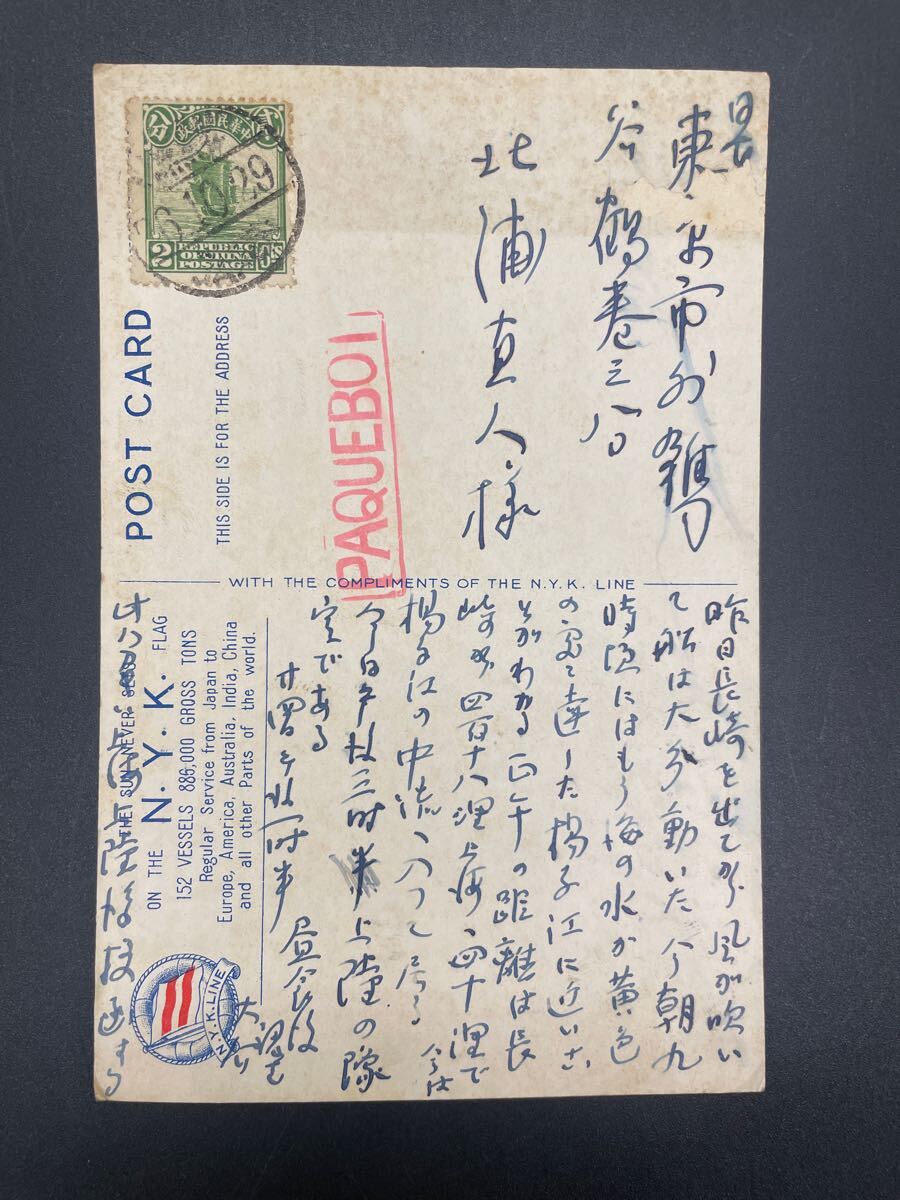 東京市外雑司
谷鶴巻三八
北浦直人様
昨日長崎を出てから風が吹い
て船は大分動いた 今朝九
時頃にはもう海の水が黄色
の
達した 揚子江に近いこ
とがわかる 正午の距離は長
崎から四百十八浬 上海へ四十浬で
今は
揚子江の中流へ入って居る
今日午後三時半上陸の豫
定である
廿四日午後一時半 昼食後
POST CARD
THIS SIDE IS FOR THE ADDRESS
WITH THE COMPLIMENTS OF THE N.Y.K. LINE
PAQUEBOT
THE SUN NEVER SETS
ON THE N.Y.K. FLAG
152 VESSELS 886,000 GROSS TONS
Regular Service from Japan to
Europe, America, Australia, India, China
and all other Parts of the world.
N.Y.K. LINE
中華民國郵政
分
2
CTS
REPUBLIC
OF CHINA
POSTAGE
10.29